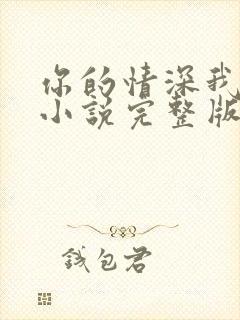 你的情深我
小说完整版
钱包君